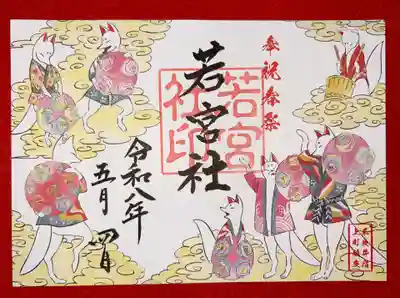 奉祝春祭
若宮社
若宮
社印
令和八年
五月 四日